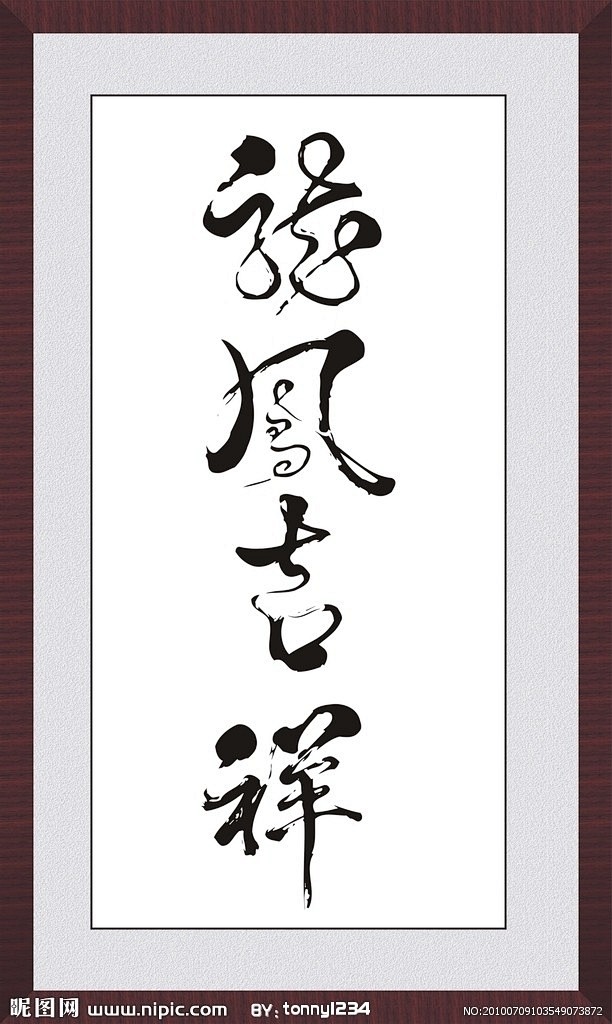 龍鳳吉祥
昵图网 www.nipic.com BY: tonny1234 NO:20100709103549073872